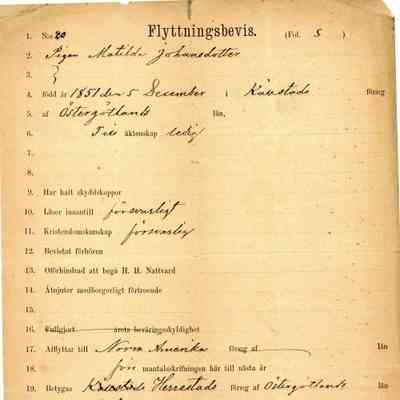 Flyttningsbevis.
1. N:o 20 (Fol. 5 )
2. Pigan Matilda Johansdotter
3.
4. född år 1851 den 5 December i Källstads föreg
5. af Östergötlands län,
6. Till äktenskap ledig
7.
8.
9. Har haft skyddskoppor
10. Läser innantill försvarligt
11. Kristendomskunskap försvarlig
12. Bevistat förhören
13. Oförhindrad att begå H. H. Nattvard
14. Åtnjuter medborgerligt förtroende
15.
16. Fullgjort årets beväringsskyldighet
17. Afflyttar till Norra Amerika föreg af län
18. före mantalsskrifningen här till nästa år
19. Betygas Källstads Herrestads föreg af Östergötlands län